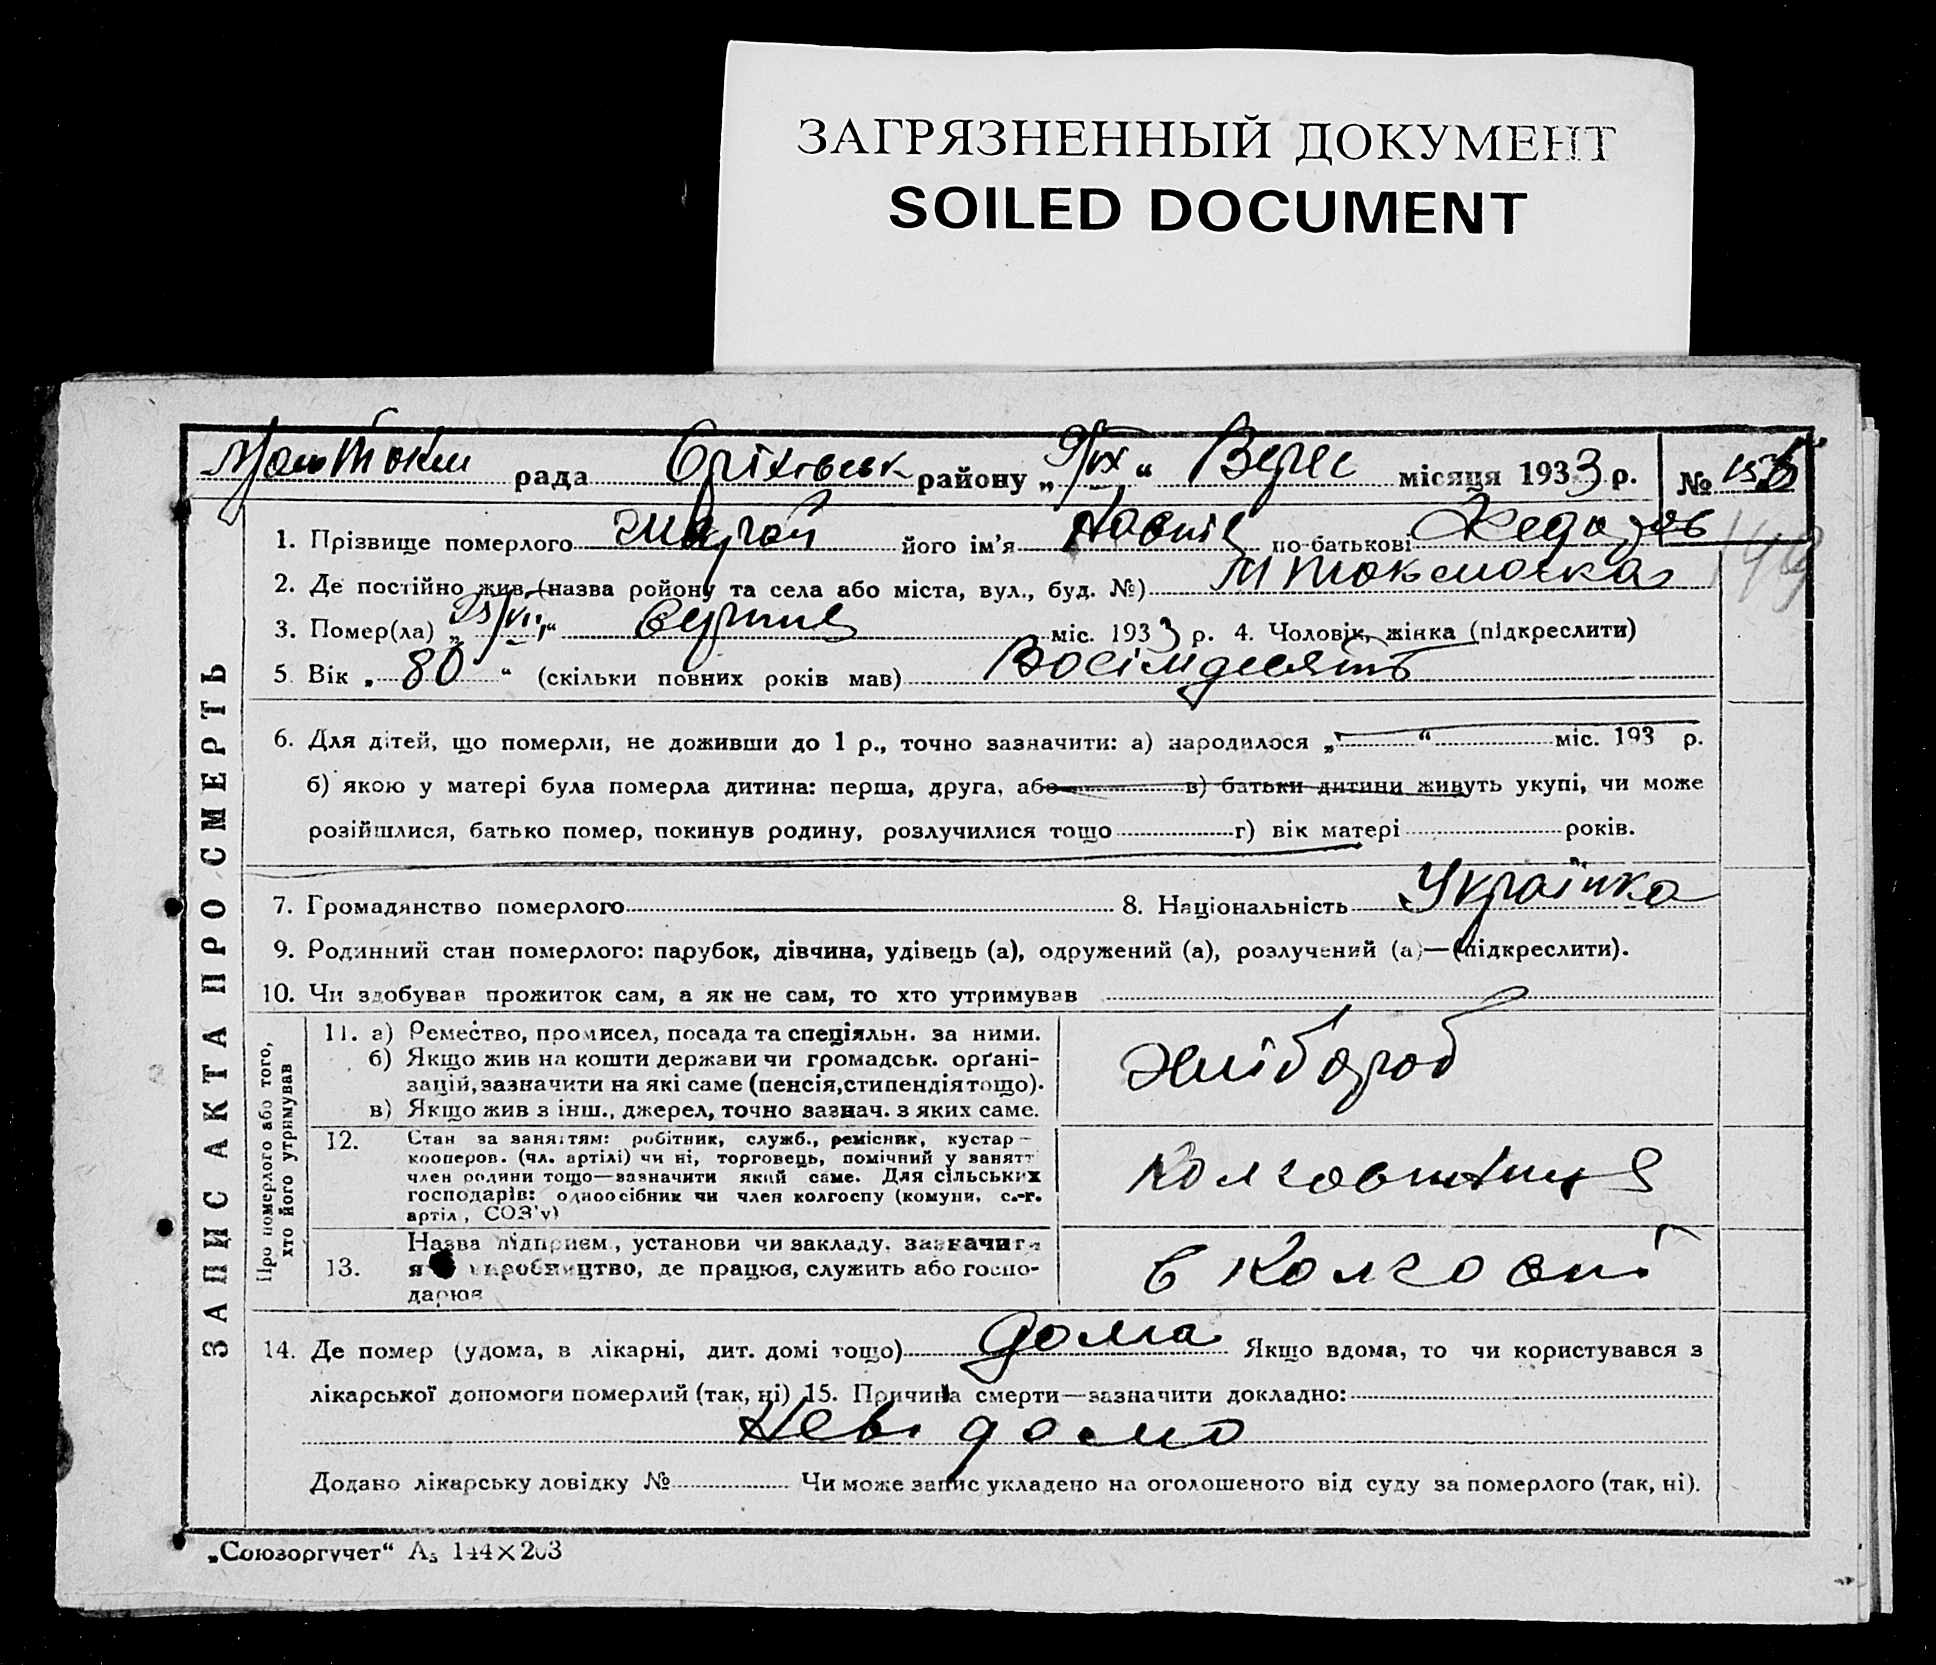 ЗАГРЯЗНЕННЫЙ ДОКУМЕНТ
SOILED DOCUMENT
рада Оріхівськ району „9/IX“ Верес місяця 1933 р. №
ЗАПИС АКТА ПРО СМЕРТЬ
1. Прізвище померлого його ім'я по-батькові
2. Де постійно жив (назва ройону та села або міста, вул., буд. №)
3. Помер(ла) „ “ міс. 1933 р. 4. Чоловік, жінка (підкреслити)
5. Вік „80“ (скільки повних років мав) Восімдесять
6. Для дітей, що померли, не доживши до 1 р., точно зазначити: а) народилося „ “ міс. 193 р.
б) якою у матері була померла дитина: перша, друга, або в) батьки дитини живуть укупі, чи може
розійшлися, батько помер, покинув родину, розлучилися тощо г) вік матері років.
7. Громадянство померлого 8. Національність Українка
9. Родинний стан померлого: парубок, дівчина, удівець (а), одружений (а), розлучений (а)—(підкреслити).
10. Чи здобував прожиток сам, а як не сам, то хто утримував
Про померлого або того,
хто його утримував
11. а) Ремество, промисел, посада та спеціяльн. за ними.
б) Якщо жив на кошти держави чи громадськ. орґані-
зацій, зазначити на які саме (пенсія, стипендія тощо).
в) Якщо жив з інш., джерел, точно зазнач. з яких саме.
Хлібороб
12. Стан за заняттям: робітник, служб., ремісник, кустар—
кооперов. (чл. артілі) чи ні, торговець, помічний у занятт
член родини тощо—зазначити який саме. Для сільських
господарів: одноосібник чи член колгоспу (комуни, с.-г.
артіл, СОЗ'у)
Колгоспниця
13. Назва підприєм., установи чи закладу, зазначит
виробництво, де працює, служить або госпо-
дарює
в колгоспі
14. Де помер (удома, в лікарні, дит. домі тощо) дома Якщо вдома, то чи користувався з
лікарської допомоги померлий (так, ні) 15. Причина смерти—зазначити докладно:
Невідомо
Додано лікарську довідку № Чи може запис укладено на оголошеного від суду за померлого (так, ні).
„Союзоргучет“ А₅ 144×203